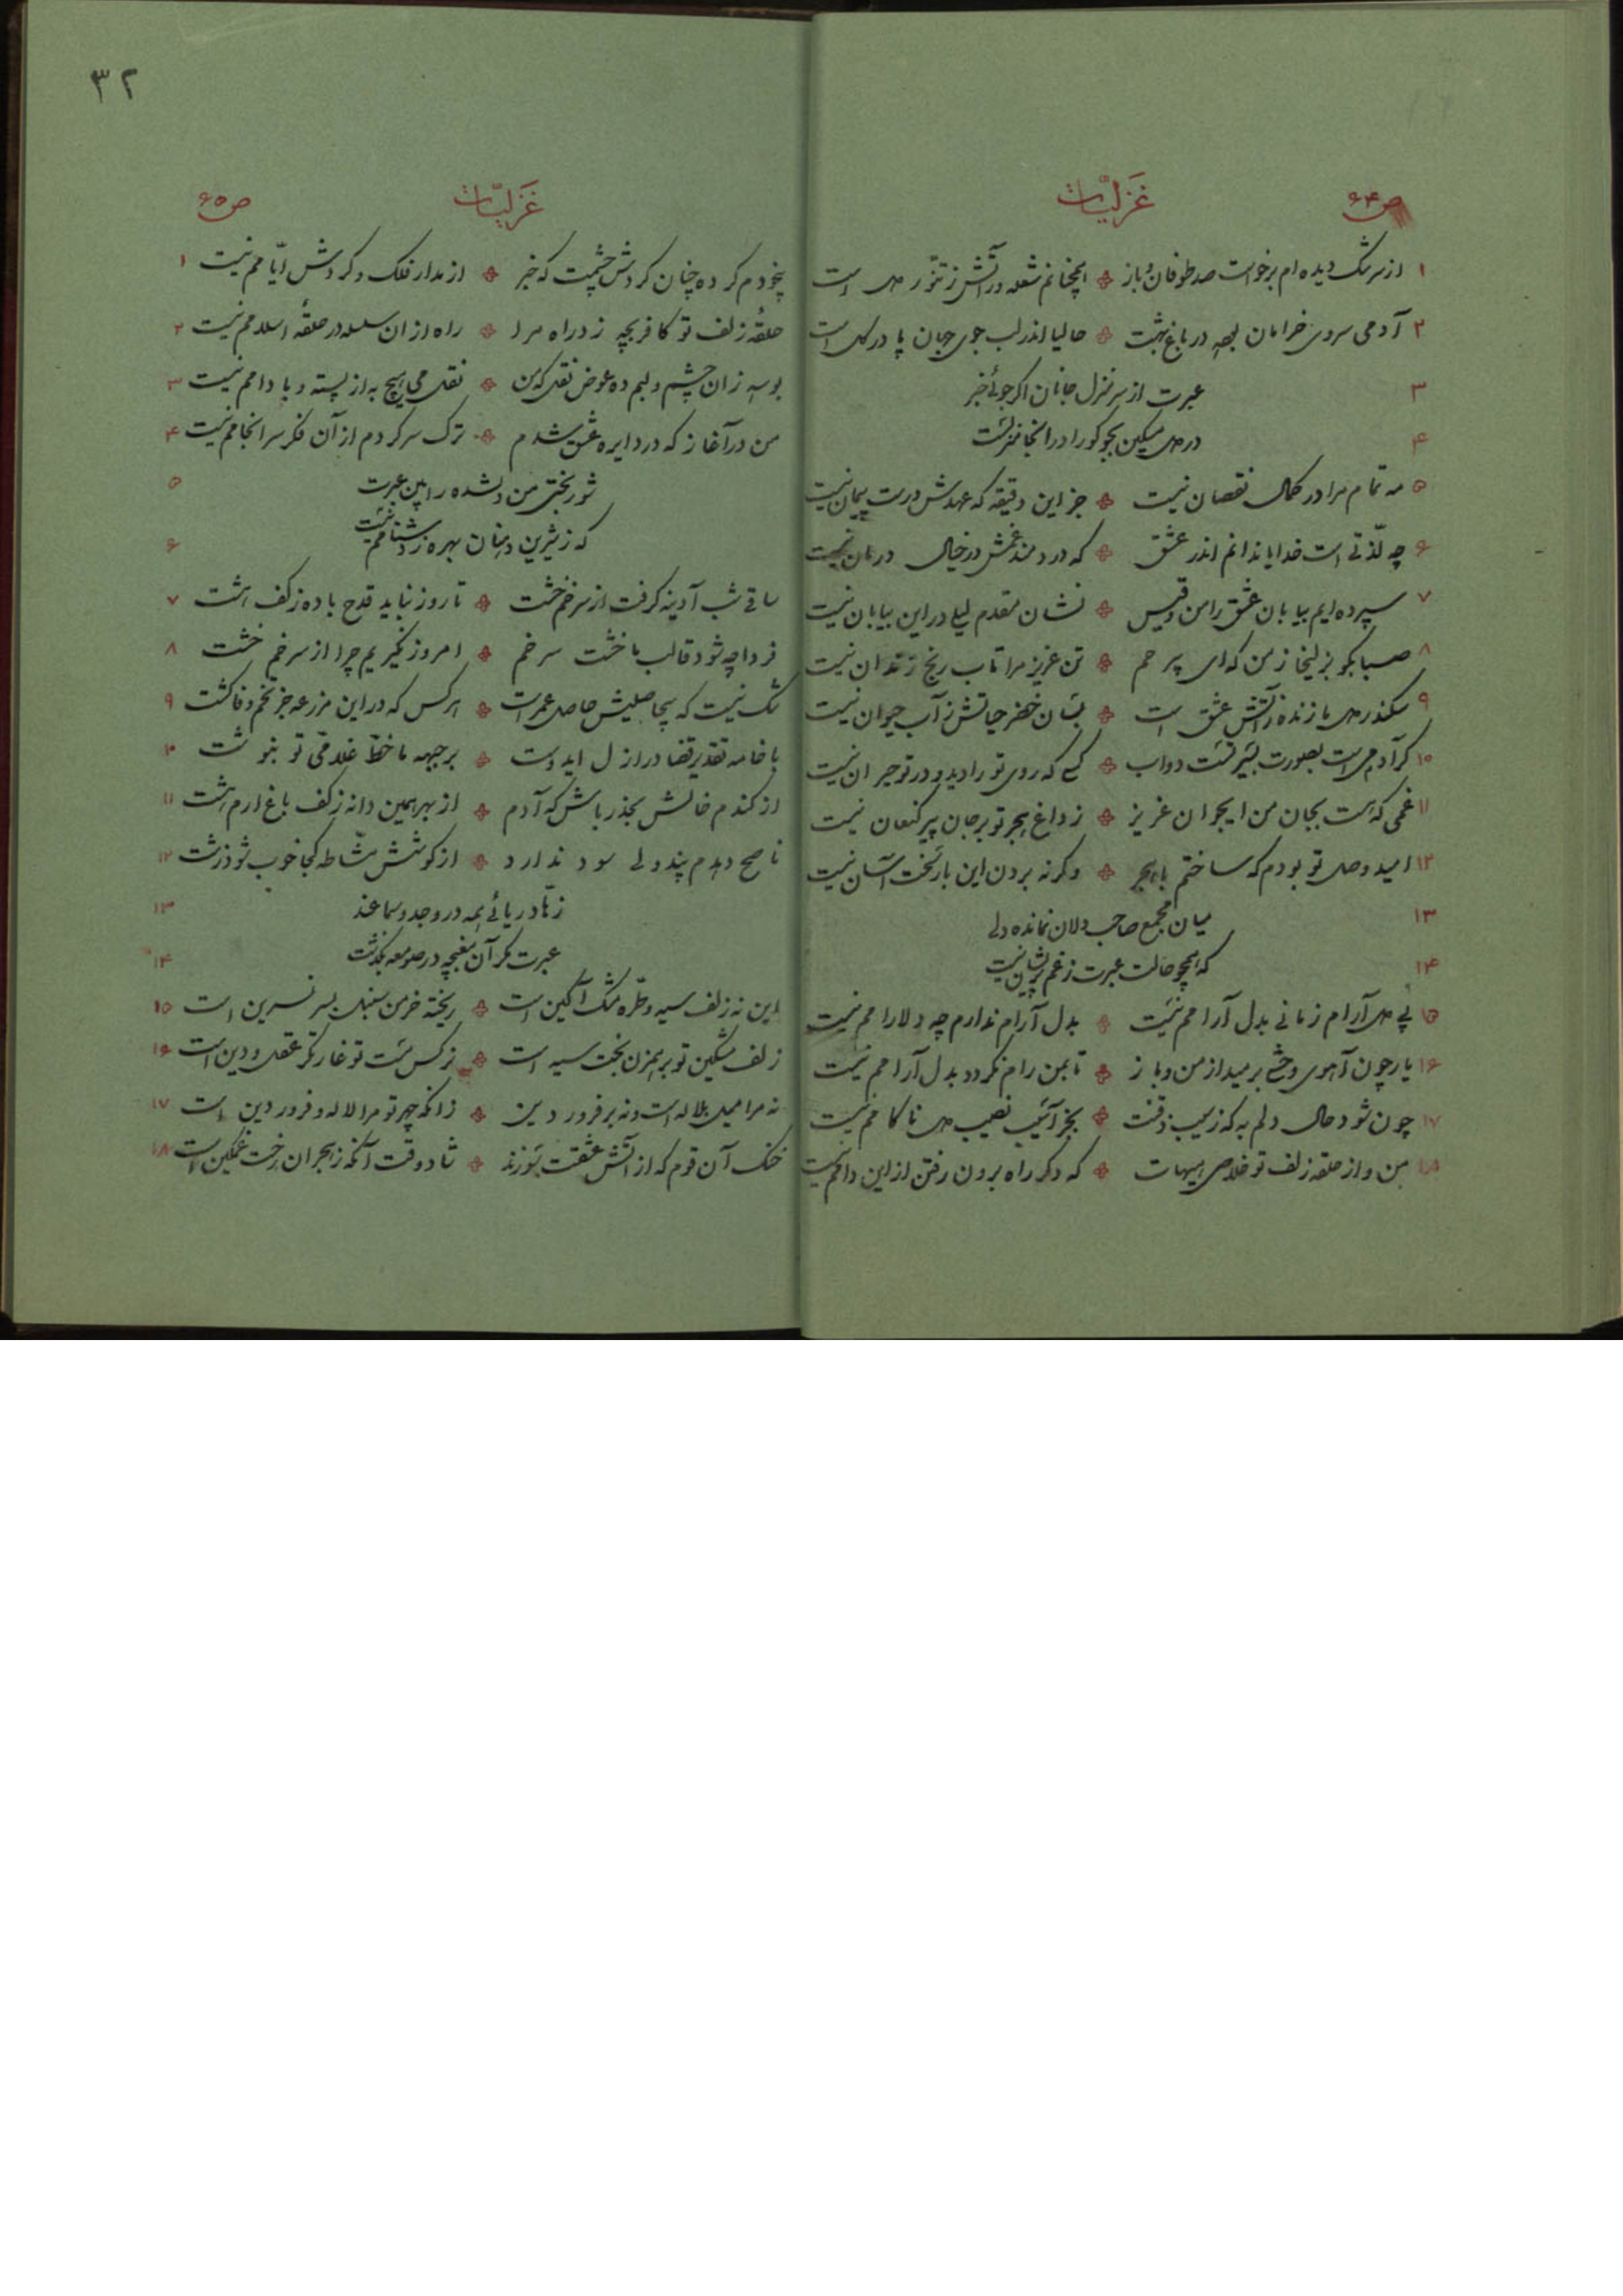 ص ۶۴ غزلیّات
۱ از سرشک دیده‌ام برخواست صد طوفان و باز ❖ همچنانم شعله در آتش ز تنّور دل است
۲ آدمی سروی خرامان بهر در باغ بهشت ❖ حالیا اندر لب جوی جهان پا در گل است
۳ عبرت از سر منزل جانان اگر جوئی خبر
۴ در دل مسکین بجو کو را در انجا منزلست
۵ مه تمام مرا در کمال نقصان نیست ❖ جز این دقیقه که عهدش درست پیمان نیست
۶ چه لذّتی است خدایا ندانم اندر عشق ❖ که دردمند غمش در خیال درمان نیست
۷ سپرده‌ایم بیابان عشق را من و قیس ❖ نشان مقدم لیلی در این بیابان نیست
۸ صبا بگو بزلیخا ز من که ای پر حم ❖ تن عزیز مرا تاب رنج زندان نیست
۹ سکندر دل ما زنده ز آتش عشق است ❖ بسان خضر حیاتش ز آب حیوان نیست
۱۰ گر آدمی است بصورت بسیرتست دواب ❖ کسی که روی تو را دید و در تو حیران نیست
۱۱ غمی که هست بجان من ایجوان عزیز ❖ ز داغ هجر تو بر جان پیر کنعان نیست
۱۲ امید وصل تو بودم که ساختم با هجر ❖ وگرنه بردن این بار سخت آسان نیست
۱۳ میان مجمع صاحب دلان نمانده دلی
۱۴ که همچو حالت عبرت ز غم پریشان نیست
۱۵ پی دل آرام زمانی بدل آرامم نیست ❖ بدل آرام ندارم چه دلارامم نیست
۱۶ یار چون آهوی وحشی برمید از من و باز ❖ تا بمن رام نگردد بدل آرامم نیست
۱۷ چون شود حال دلم به که ز سیب ذقنت ❖ بجز آسیب نصیب دل ناکامم نیست
۱۸ من و از حلقه زلف تو خلاصی هیهات ❖ که دگر راه برون رفتن از این دامم نیست
۳۲
ص ۶۵ غزلیّات
بیخودم کرده چنان گردش چشمت که خبر ❖ از مدار فلک و گردش ایّامم نیست ۱
حلقه زلف تو کافر بچه زد راه مرا ❖ راه از ان سلسله در حلقه اسلامم نیست ۲
بوسه زان چشم و لبم ده عوض نقل که من ❖ نقل می هیچ به از پسته و بادامم نیست ۳
من در آغاز که در دایره عشق شدم ❖ ترک سر کردم از آن فکر سرانجامم نیست ۴
شوربختی من دلشده را بین عبرت ۵
که ز شیرین دهنان بهره ز دشنامم نیست ۶
ساقی شب آدینه گرفت از سر خم خشت ❖ تا روز نباید قدح باده ز کف هشت ۷
فردا چه شود قالب ما خشت سر خم ❖ امروز نگیریم چرا از سر خم خشت ۸
شک نیست که بیحاصلیش حاصل عمر است ❖ هر کس که در این مزرعه جز تخم وفا کشت ۹
با خامه تقدیر قضا در ازل ایدوست ❖ بر جبهه ما خطّ غلامی تو بنوشت ۱۰
از گندم خالش بحذر باش که آدم ❖ از بهر همین دانه ز کف باغ ارم هشت ۱۱
ناصح دهدم پند ولی سود ندارد ❖ از کوشش مشّاطه کجا خوب شود زشت ۱۲
زهّاد ریائی همه در وجد و سماعند ۱۳
عبرت مگر آن مغبچه در صومعه بگذشت ۱۴
این نه زلف سیه و طرّه مشک آگین است ❖ ریخته خرمن سنبل بسر نسرین است ۱۵
زلف مشکین تو بر همزن بخت سیه است ❖ نرگس مست تو غارتگر عقل و دین است ۱۶
نه مرا میل بلاله است و نه بر فروردین ❖ زانکه چهر تو مرا لاله و فروردین است ۱۷
خنک آن قوم که از آتش عشقت بسوزند ❖ شاد وقت آنکه ز هجران رخت غمگین است ۱۸